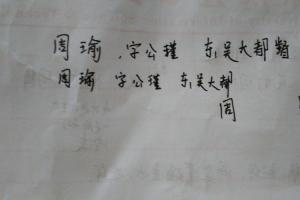 周瑜,字公瑾 东吴大都
周瑜 字公瑾 东吴大都
周